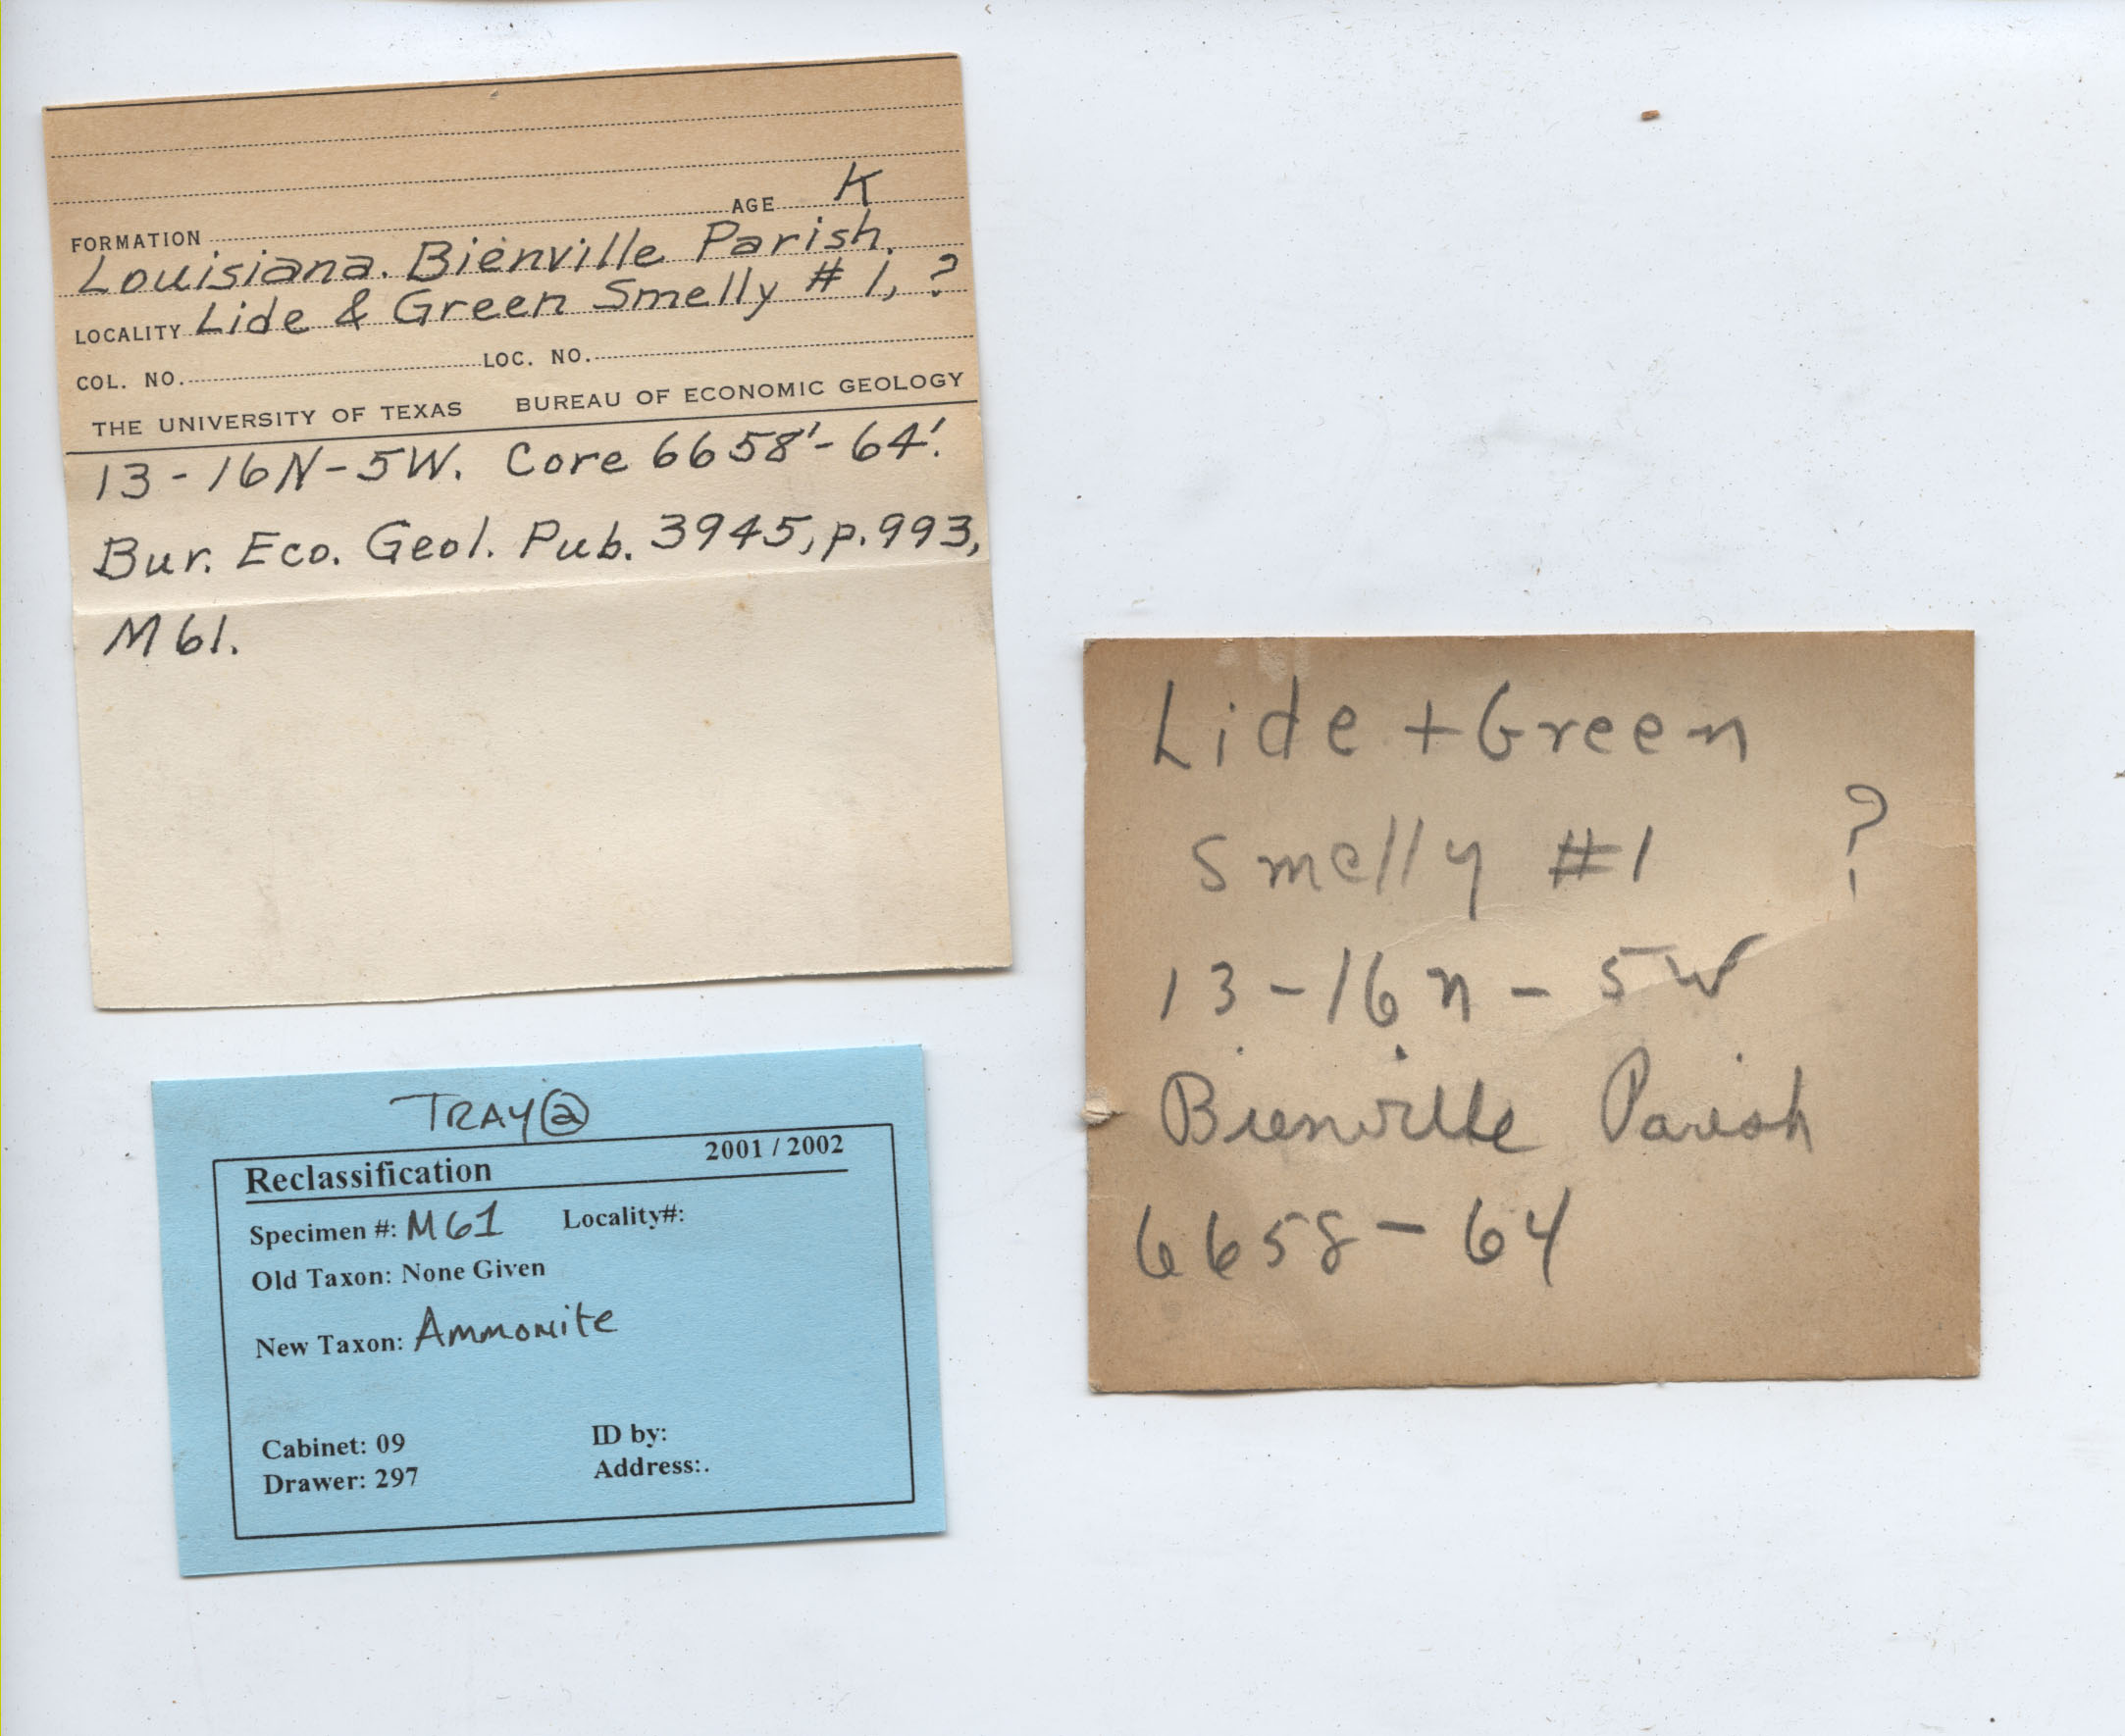 AGE K
FORMATION
Louisiana. Bienville Parish.
LOCALITY Lide & Green Smelly # 1, ?
COL. NO. LOC. NO.
THE UNIVERSITY OF TEXAS BUREAU OF ECONOMIC GEOLOGY
13-16N-5W. Core 6658'-64'.
Bur. Eco. Geol. Pub. 3945, p. 993,
M61.
Lide + Green
Smelly #1 ?
13-16n-5W
Bienville Parish
6658-64
TRAY ②
Reclassification 2001 / 2002
Specimen #: M61 Locality#:
Old Taxon: None Given
New Taxon: Ammonite
Cabinet: 09 ID by:
Drawer: 297 Address:.